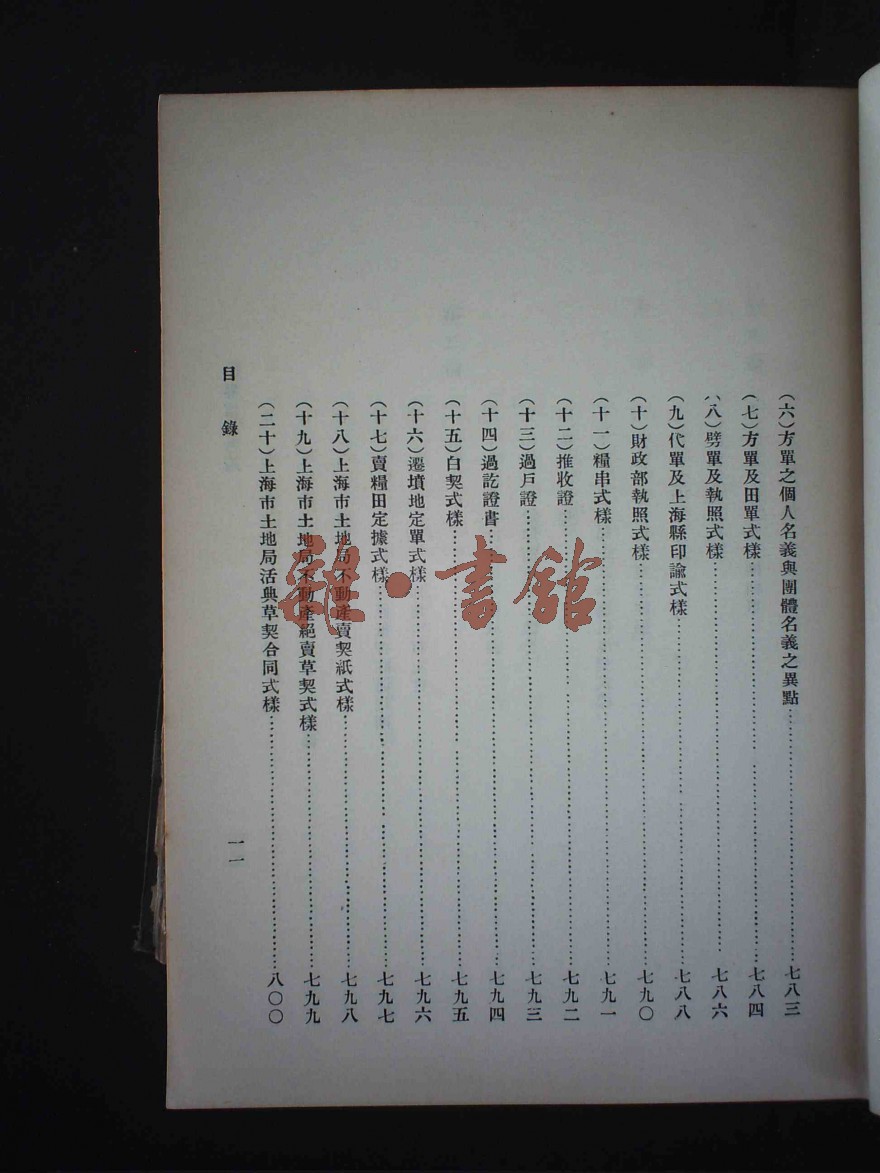 (六)方單之個人名義與團體名義之異點……七八三
(七)方單及田單式樣……七八四
(八)劈單及執照式樣……七八六
(九)代單及上海縣印諭式樣……七八八
(十)財政部執照式樣……七九〇
(十一)糧串式樣……七九一
(十二)推收證……七九二
(十三)過戶證……七九三
(十四)過訖證書……七九四
(十五)白契式樣……七九五
(十六)遷墳地定單式樣……七九六
(十七)賣糧田定據式樣……七九七
(十八)上海市土地局不動產賣契紙式樣……七九八
(十九)上海市土地局不動產絕賣草契式樣……七九九
(二十)上海市土地局活典草契合同式樣……八〇〇
目錄
一一
雜·書館